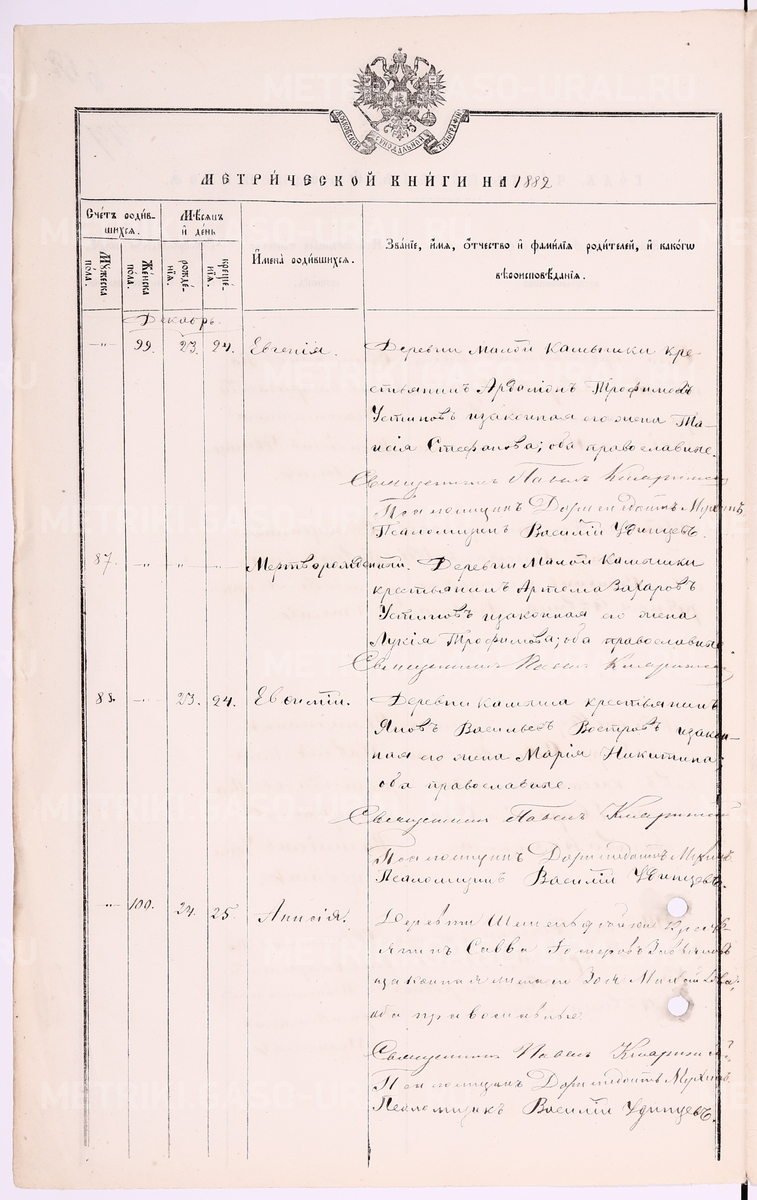 МОСКОВСКОЙ СѴНОДАЛЬНОЙ ТИПОГРАФІИ
МЕТРИ́ЧЕСКОЙ КНИ́ГИ НА 1882
Сче́тъ роди́в-
шихсѧ.
Мѣ́сѧцъ
и҆ де́нь
И҆мена̀ роди́вшихсѧ.
Зва́нїе, и҆́мѧ, ѻ҆́тчество и҆ фами́лїѧ роди́телей, и҆ како́гѡ
вѣроисповѣ́данїѧ.
Мꙋ́жеска
по́ла.
Же́нска
по́ла.
рожде́-
нїѧ.
креще́-
нїѧ.
Декабрь.
-„- 99. 23. 24. Евгенія. Деревни Малой Камышки кре-
стьянинъ Трофимовъ
Устиновъ изаконная его жена Та-
исія Стефанова; оба православные.
Священникъ Павелъ
Псаломщикъ Доримедонтъ Мухинъ
Псаломщикъ Василій Удинцевъ.
87. -„- „ -„- Мертворожденный. Деревни Малой Камышки
крестьянинъ Артема Захаровъ
Устиновъ изаконная его жена
Лукія Трофимова; оба православные
Священникъ Павелъ
88. -„- 23. 24. Евфимій. Деревни Камыша крестьянинъ
Яковъ Васильевъ Востровъ изакон-
ная его жена Марія Никитина
оба православные.
Священникъ Павелъ
Псаломщикъ Доримедонтъ Мухинъ
Псаломщикъ Василій Удинцевъ.
-„- 100. 24. 25. Анисія. Деревни кресть
янинъ Савва
изаконная жена его Зоя
оба православные
Священникъ Павелъ
Псаломщикъ Доримедонтъ Мухинъ
Псаломщикъ Василій Удинцевъ.
METRIKI.GASO-URAL.RU